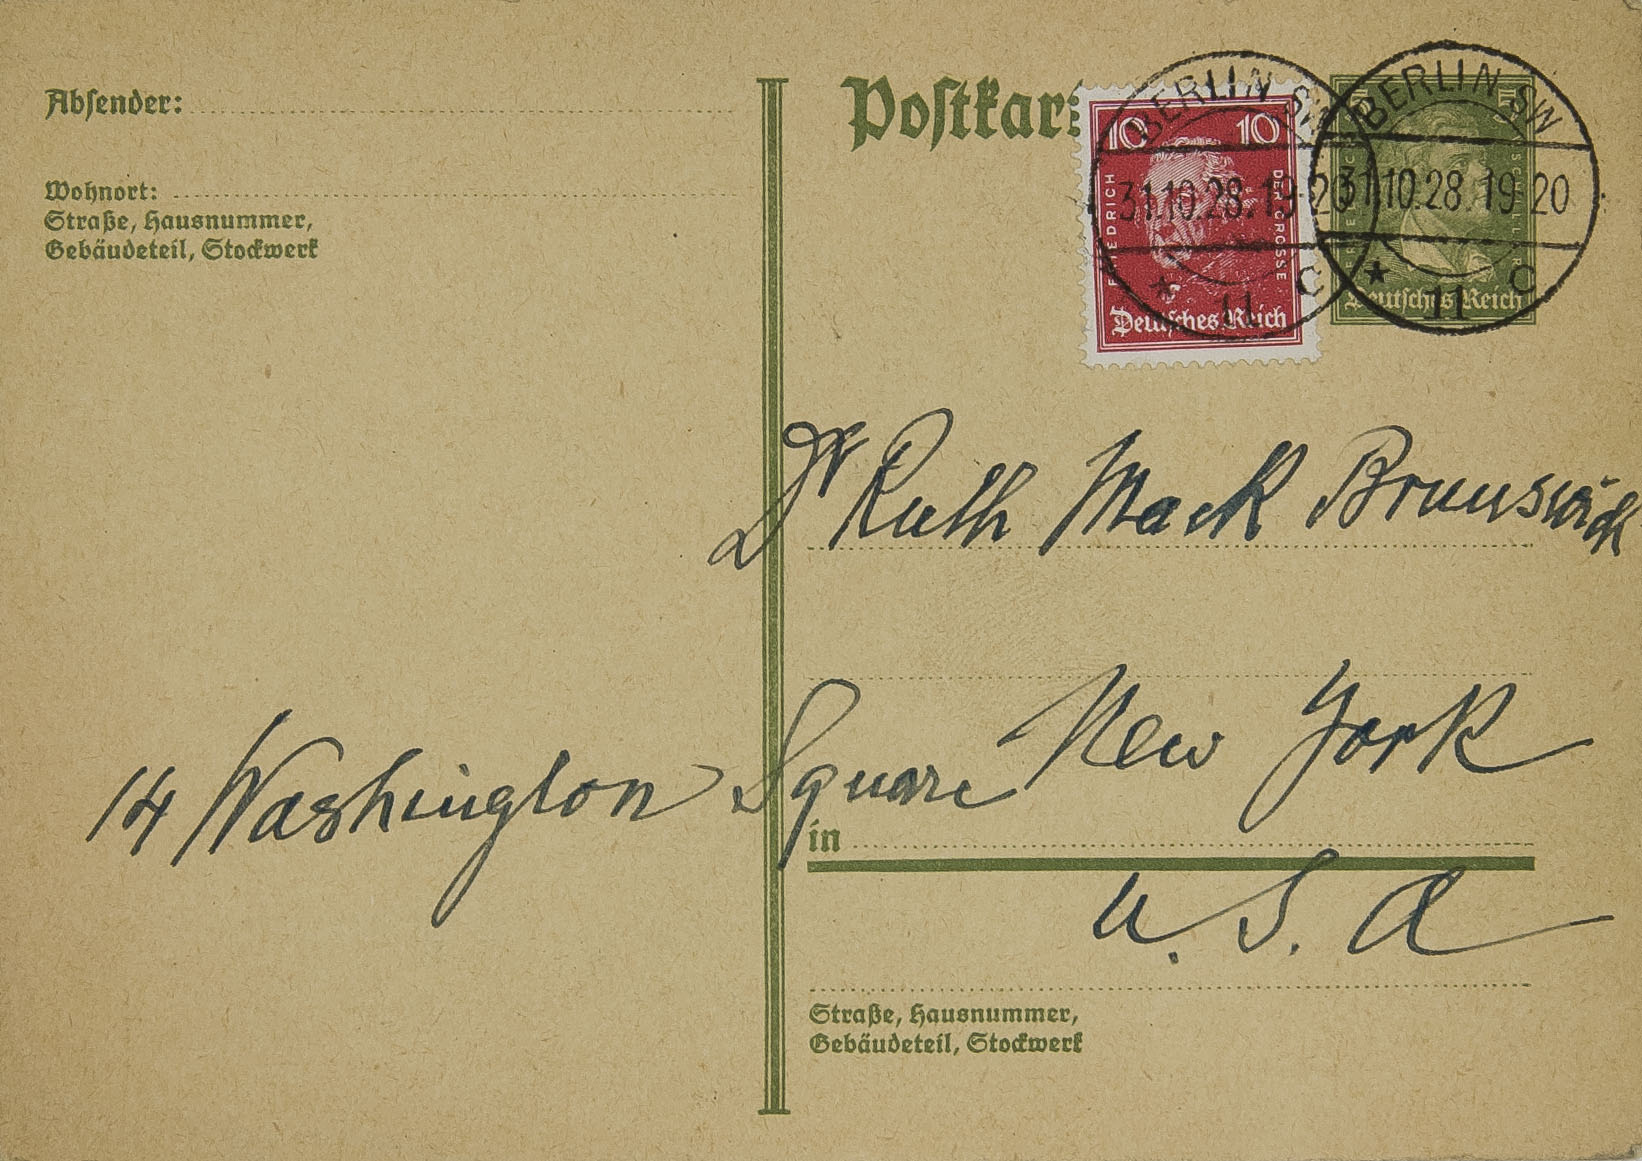 Absender:
Wohnort:
Straße, Hausnummer,
Gebäudeteil, Stockwerk
Postkar
10 10
FRIEDRICH DER GROSSE
Deutsches Reich
BERLIN SW
31.10.28.19-20
* 11 C
5
Deutsches Reich
BERLIN SW
31.10.28.19-20
* 11 C
Dr Ruth Mack Brunswick
14 Washington Square New York
in
U.S.A
Straße, Hausnummer,
Gebäudeteil, Stockwerk